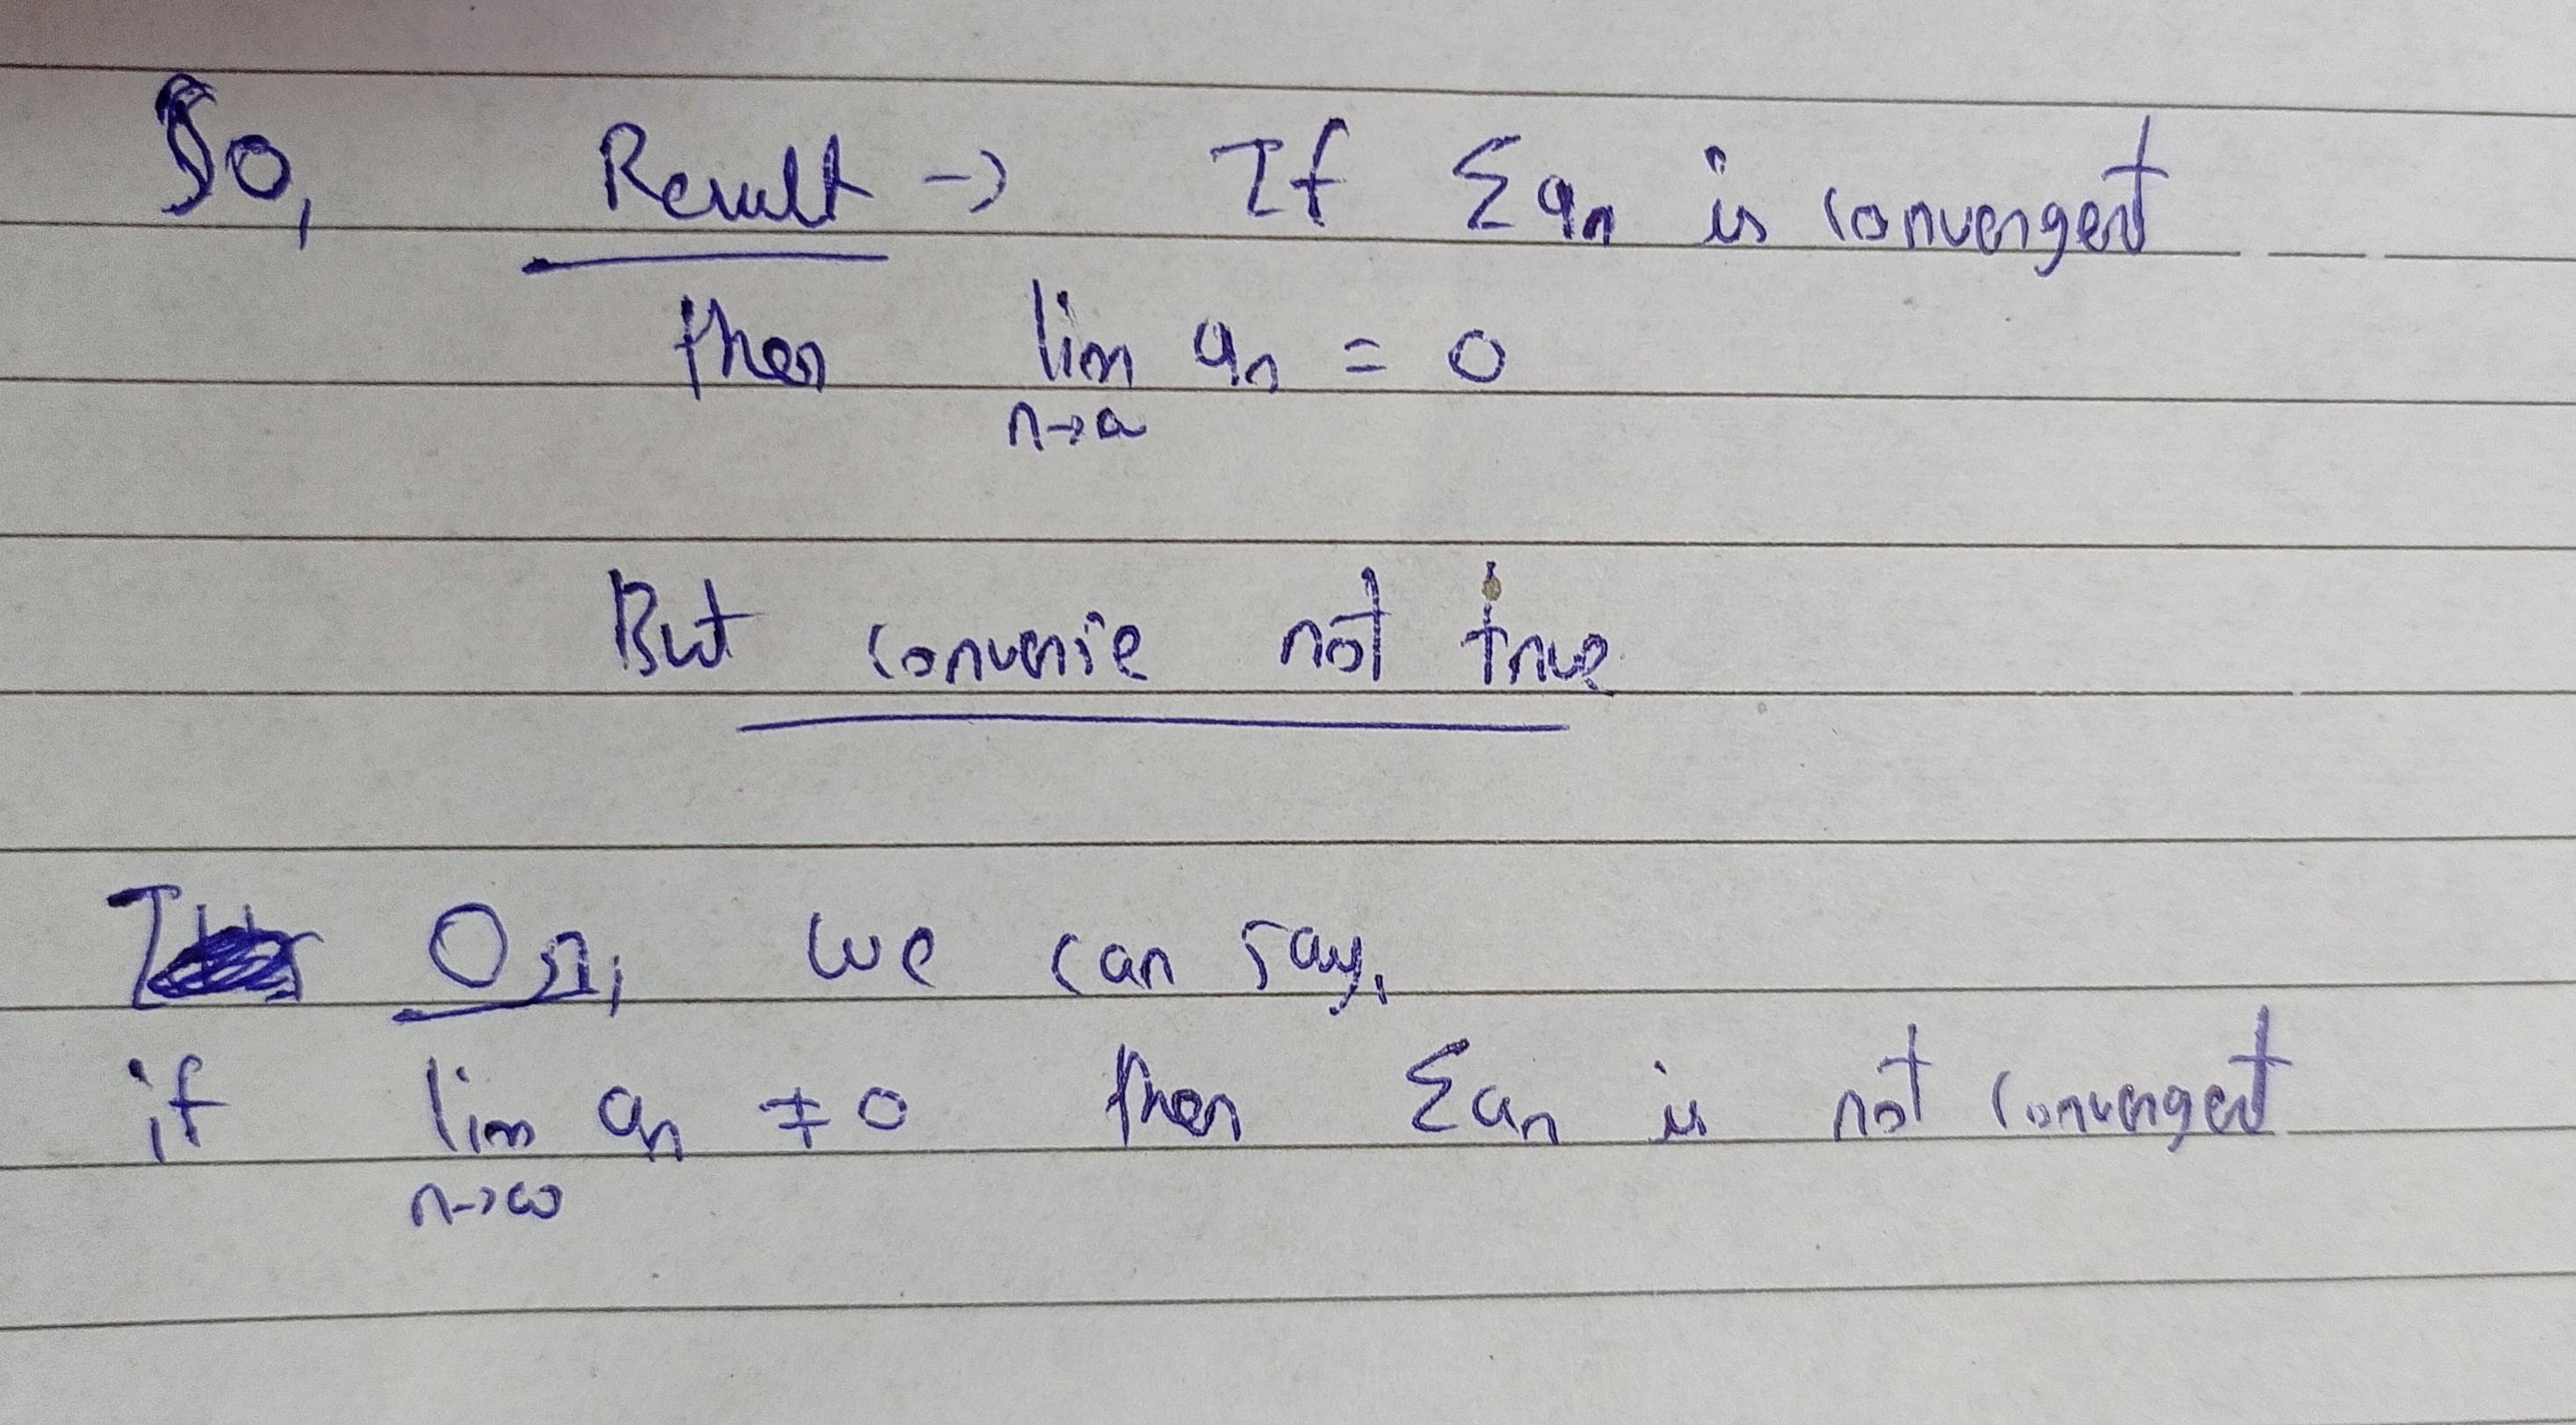 So, Result → If Σan is convergent
then lim an = 0
n→∞
But converse not true
Or, we can say,
if lim an ≠ 0 then Σan is not convergent
n→∞